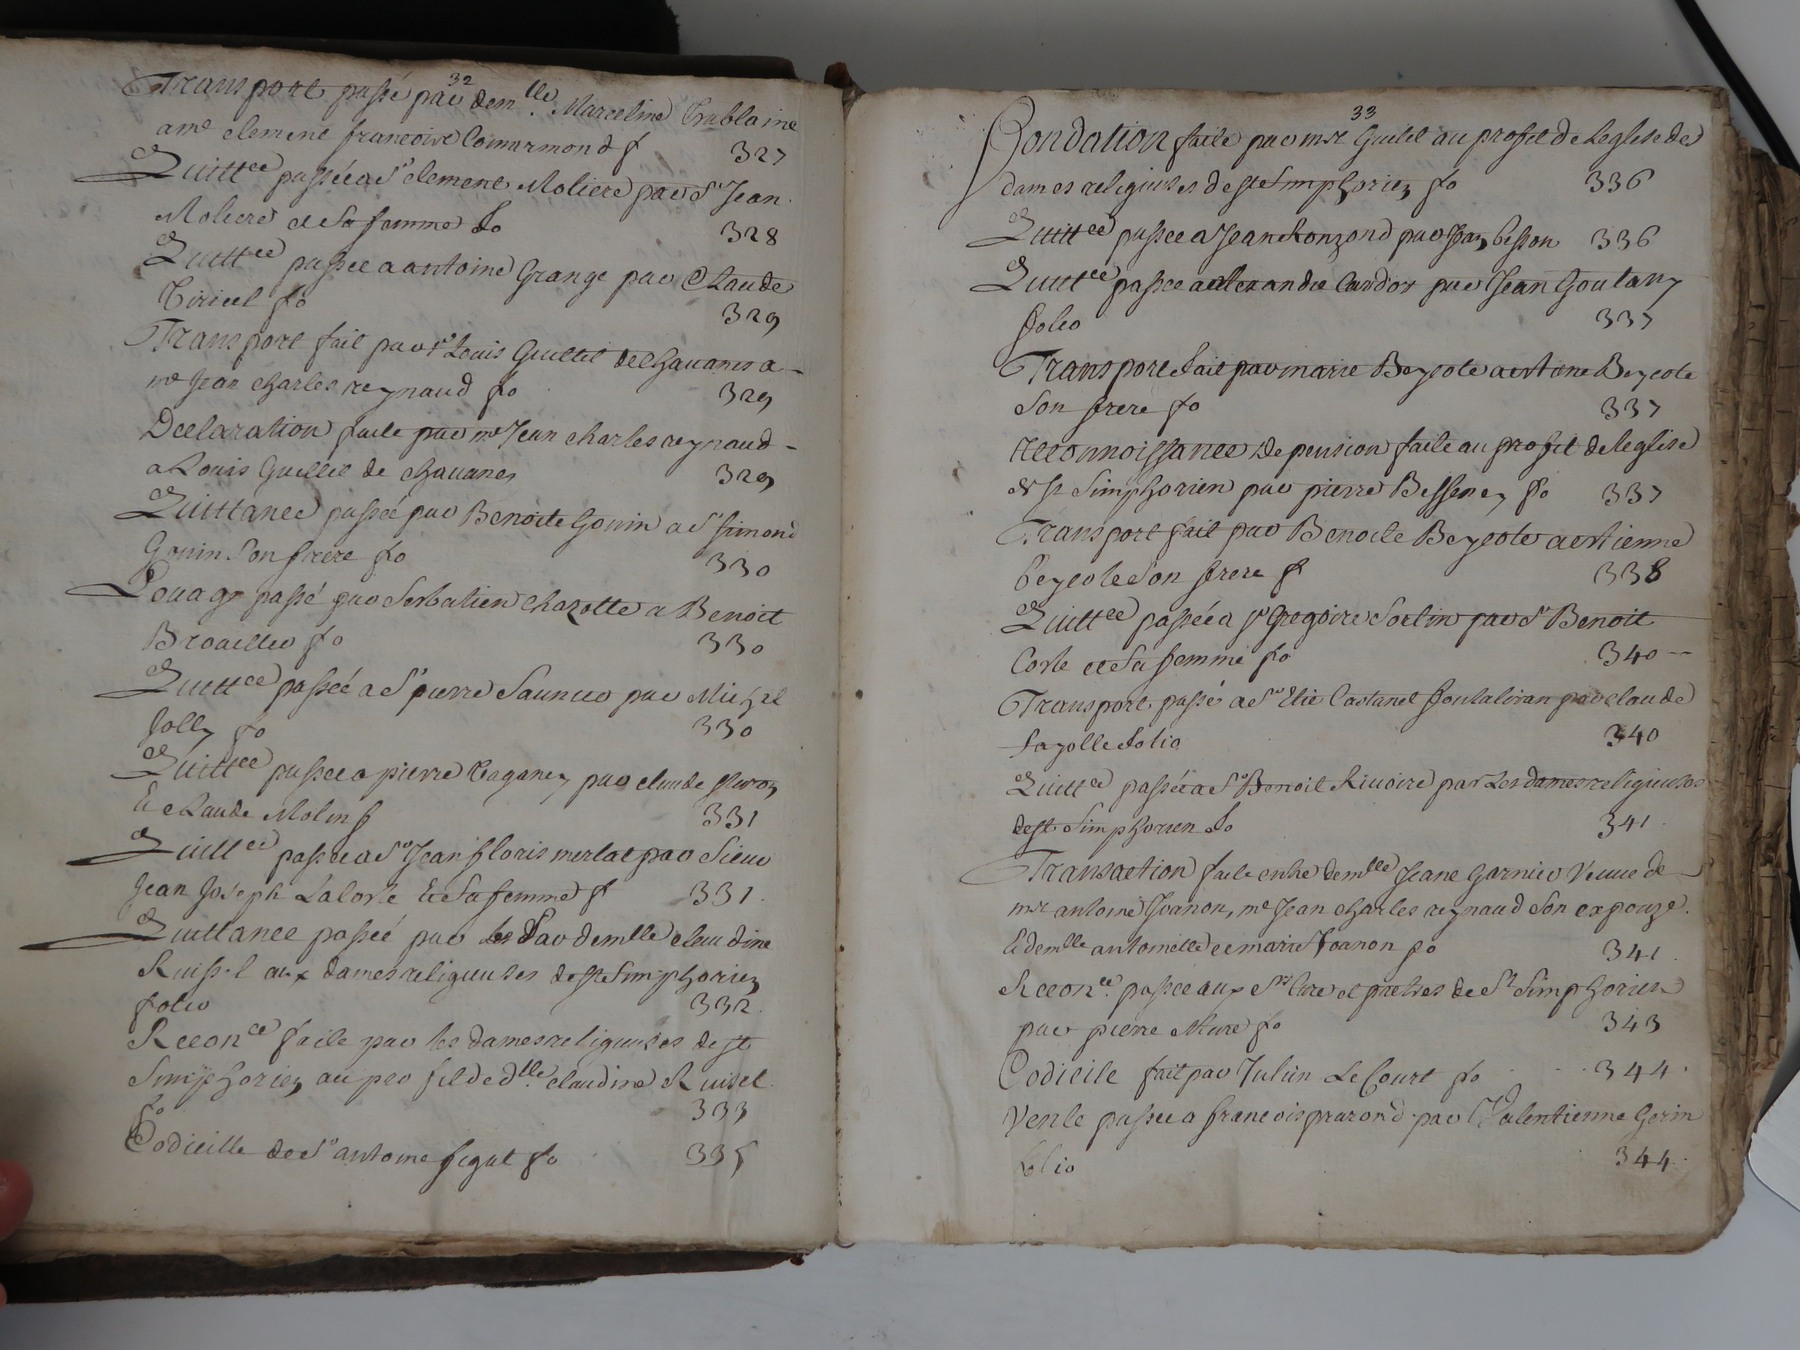 32
Transport passé par demlle. Marceline Trablaine
a me clement francoise Comarmond f 327
Quittce passée a Sr clement Moliere par Sr Jean
Moliere et Sa femme fo 328
Quittce passée a antoine Grange par Claude
Ciricel fo 329
Transport fait par Sr Louis Guillet de chavanes a
me Jean charles reynaud fo 329
Declaration faite par me Jean charles reynaud
a Louis Guillet de chavanes 329
Quittance passée par Benoite Gonin a Sr Simond
Gonin Son frere fo 330
Louage passé par Sebastien chazotte a Benoit
Broaillier fo 330
Quittce passée a Sr pierre Saunier par Michel
Jolly fo 330
Quittce passée a pierre par claude
Et Claude Molin f 331
Quittce passée a Sr Jean floris merlat par Sieur
Jean Joseph Laforte Et Sa femme f 331.
Quittance passée par demlle claudine
Ruissel aux dames religieuses de Ste Simphorien
folio 332.
Reconce faite par les dames religieuses de St
Simphorien au profit de dlle. claudine Ruisel
fo 333
Codicille de Sr antoine figat fo 335
33
fondation faite par mr Guilet au profit de Leglise des
dames religieuses de Ste Simphorien fo 336
Quittce passée a Jean Ronzond par Jean besson 336
Quittce passée a alexandre Cardor par Jean Goutany
folio 337
Transport fait par marie Beycole a antoine Beycole
Son frere fo 337
reconnoissance de pension faite au profit de leglise
de St Simphorien par pierre Bessenay fo 337
Transport fait par Benoite Beycole a estienne
beycole Son frere f 338
Quittce passée a Sr Gregoire Sorlin par Sr Benoit
Coste et Sa femme fo 340
Transport passé a Sr Elie Castanet fontaliran par claude
fayolle folio 340
Quittce passée a Sr Benoit Rivoire par Les dames religieuses
de St Simphorien fo 341.
Transaction faite entre demlle Jeane Garnier Veuve de
mr antoine Jvanon, me Jean charles reynaud Son expouze.
Et demlle antoinette et marie Jvanon fo 341.
Reconce. passée aux Srs Curé et prestres de St Simphorien
par pierre Mure fo 343
Codicile fait par Julien Le Court fo 344.
Vente passée a francois prarond par Valentienne Gerin
folio 344.